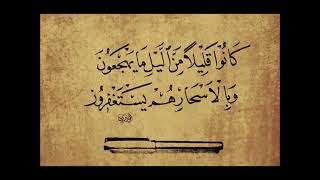 كَانُوا قَلِيلًا مِّنَ ٱلَّيْلِ مَا يَهْجَعُونَ
وَبِالْأَسْحَارِ هُمْ يَسْتَغْفِرُونَ